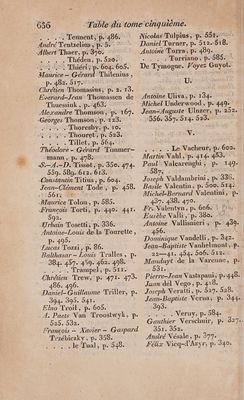 656 Table du tome cinquième.
. . . . Tennent, p. 486.
André Tentzelius, p. 5.
Albert Thaer, p. 370.
. . . . Théden, p. 520.
. . . . Thiéri, p. 604. 605.
Maurice - Gérard Thilenius,
p. 482. 517.
Chrétien Thomasius, p. 2. 13.
Everard-Jean Thomassen de
Thuessink, p. 463.
Alexandre Thomson, p. 167.
Georges Thomson, p. 123.
. . . . Thoresby, p. 10.
. . . . Thouret, p. 523.
. . . . Tillet, p. 564.
Théodore - Gérard Timmer-
mann, p. 478.
S.-A.-D. Tissot, p. 350. 474.
559. 589. 612. 613.
Constantin Titius, p. 604.
Jean-Clément Tode, p. 458.
561.
Maurice Tolon, p. 585.
François Torti, p. 440. 441.
592.
Urbain Tosetti, p. 336.
Antoine-Louis de la Tourette,
p. 495.
Lucas Tozzi, p. 86.
Balthasar - Louis Tralles, p.
384. 457. 459. 462. 498.
. . . . Trampel, p. 511.
Chrétien Trew, p. 471. 473.
486. 496.
Daniel-Guillaume Triller, p.
394. 395. 541.
Elno Troil, p. 605.
A. Paets Van Troostwyk, p.
525. 532.
François - Xavier - Gaspard
Trzebiczky, p. 358.
. . . . le Tual, p. 548.
Nicolas Tulpius, p. 551.
Daniel Turner, p. 512. 518.
Antoine Turra, p. 489.
. . . . Torriano, p. 585.
De Tymogue. Voyez Guyot.
U.
Antoine Uliva, p. 134.
Michel Underwood, p. 449.
Jean-Auguste Unzer, p. 252.
356. 357. 514. 523.
V.
. . . . Le Vacheur, p. 602.
Martin Vahl, p. 414. 453.
Paul Valcarenghi, p. 149.
587.
Joseph Valdambrini, p. 336.
Basile Valentin, p. 500. 514.
Michel-Bernard Valentini, p.
437. 438. 470.
Fr. Valentyn, p. 606.
Eusèbe Valli, p. 380.
Antoine Vallisnieri, p. 439.
456.
Dominique Vandelli, p. 342.
Jean-Baptiste Vanhelmont, p.
22-41. 454. 506. 512.
Mendajet de la Varenne, p.
531.
Pierre-Jean Vastapani, p. 448.
Juan del Vego, p. 418.
Joseph Veratti, p. 527. 528.
Jean-Baptiste Verna, p. 344.
393.
. . . . Verny, p. 584.
Gauthier Verschuir, p. 327.
351. 352.
André Vésale, p. 377.
Félix Vicq-d'Azyr, p. 340.